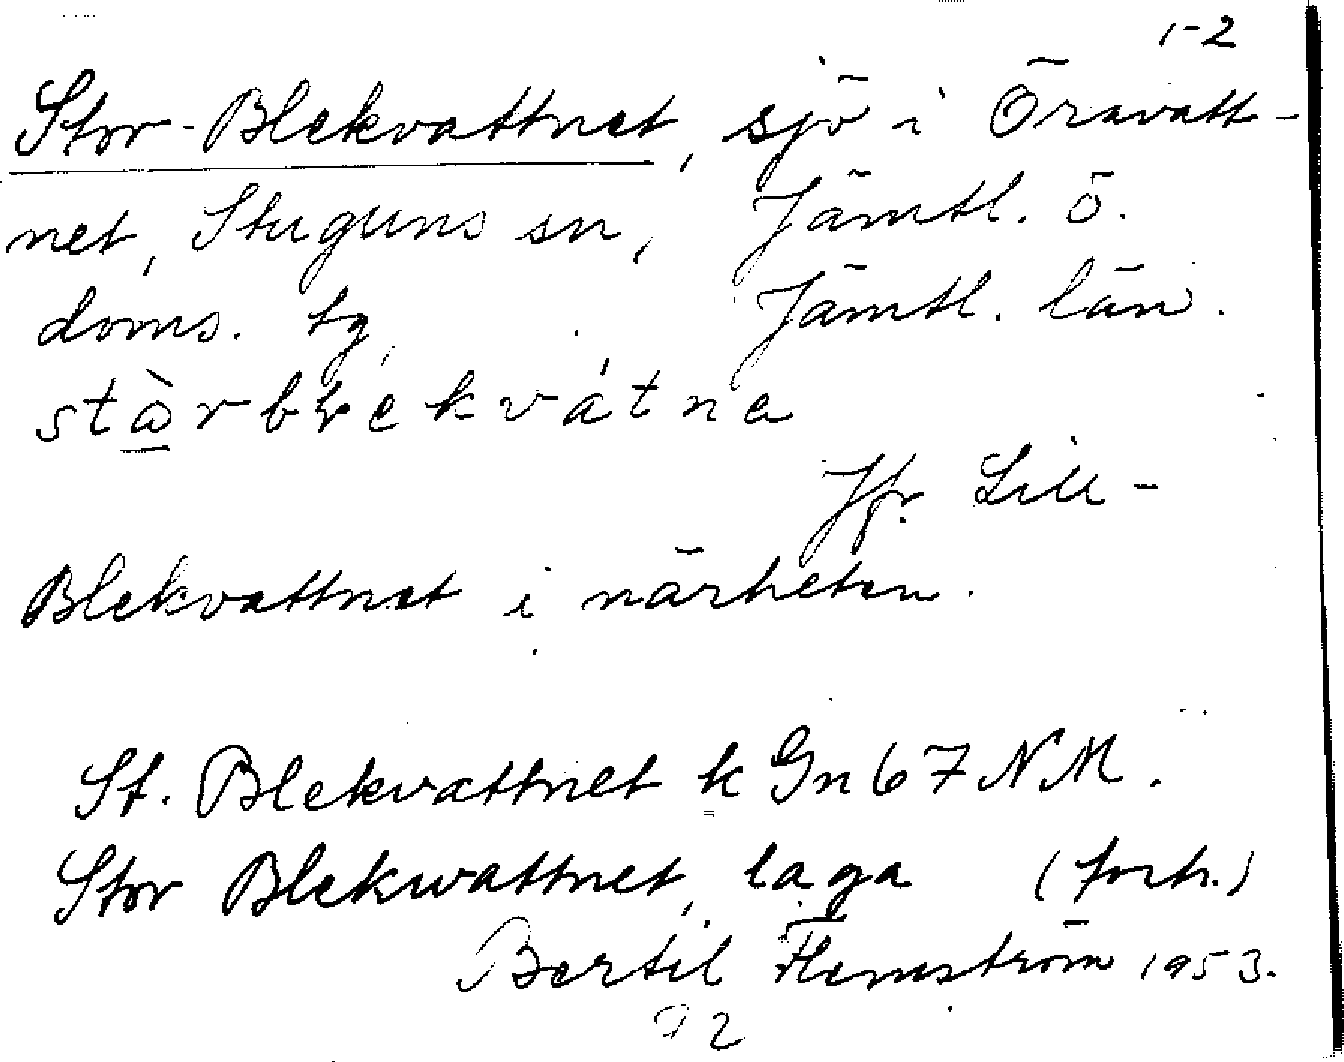 1-2
Stor-Blekvattnet, sjö i Öravatt-
net, Stuguns sn, Jämtl. ö.
doms. tg, Jämtl. län.
stὼrblekvátna
Jfr. Lill-
Blekvattnet i närheten.
St. Blekvattnet k Gn 67 NM.
Stor Blekwattnet, laga (forh.)
Bertil Flemström 1953.
2